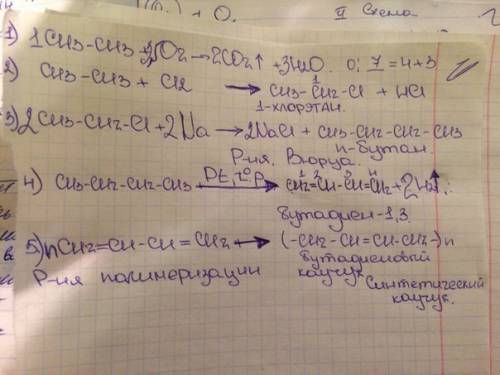 + O.
II Схема
1) 1CH3-CH3 + O2 → 2CO2↑ + 3H2O. O: 7 = 4+3
2) CH3-CH3 + Cl2 → CH3-CH2-Cl + HCl
1
1-хлорэтан.
3) 2CH3-CH2-Cl + 2Na → 2NaCl + CH3-CH2-CH2-CH3
н-бутан.
Р-ия. Вюрца.
4) CH3-CH2-CH2-CH3 Pt, t° P → CH2=CH-CH=CH2 + 2H2↑
1 2 3 4
бутадиен-1,3.
5) nCH2=CH-CH=CH2 → (-CH2-CH=CH-CH2-)n
Р-ия полимеризации
бутадиеновый
каучук
Синтетический
каучук.